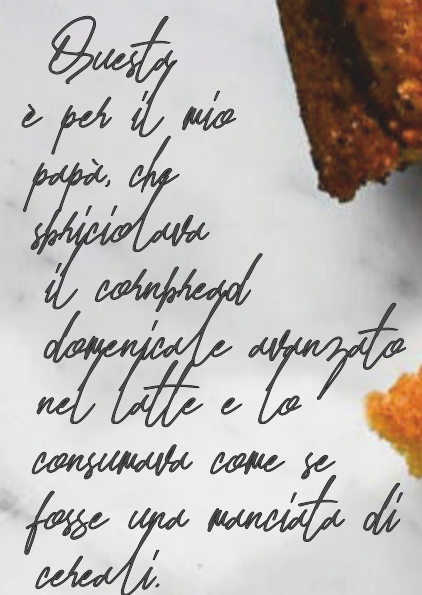 Questa
è per il mio
papà, che
sbriciolava
il cornbread
domenicale avanzato
nel latte e lo
consumava come se
fosse una manciata di
cereali.